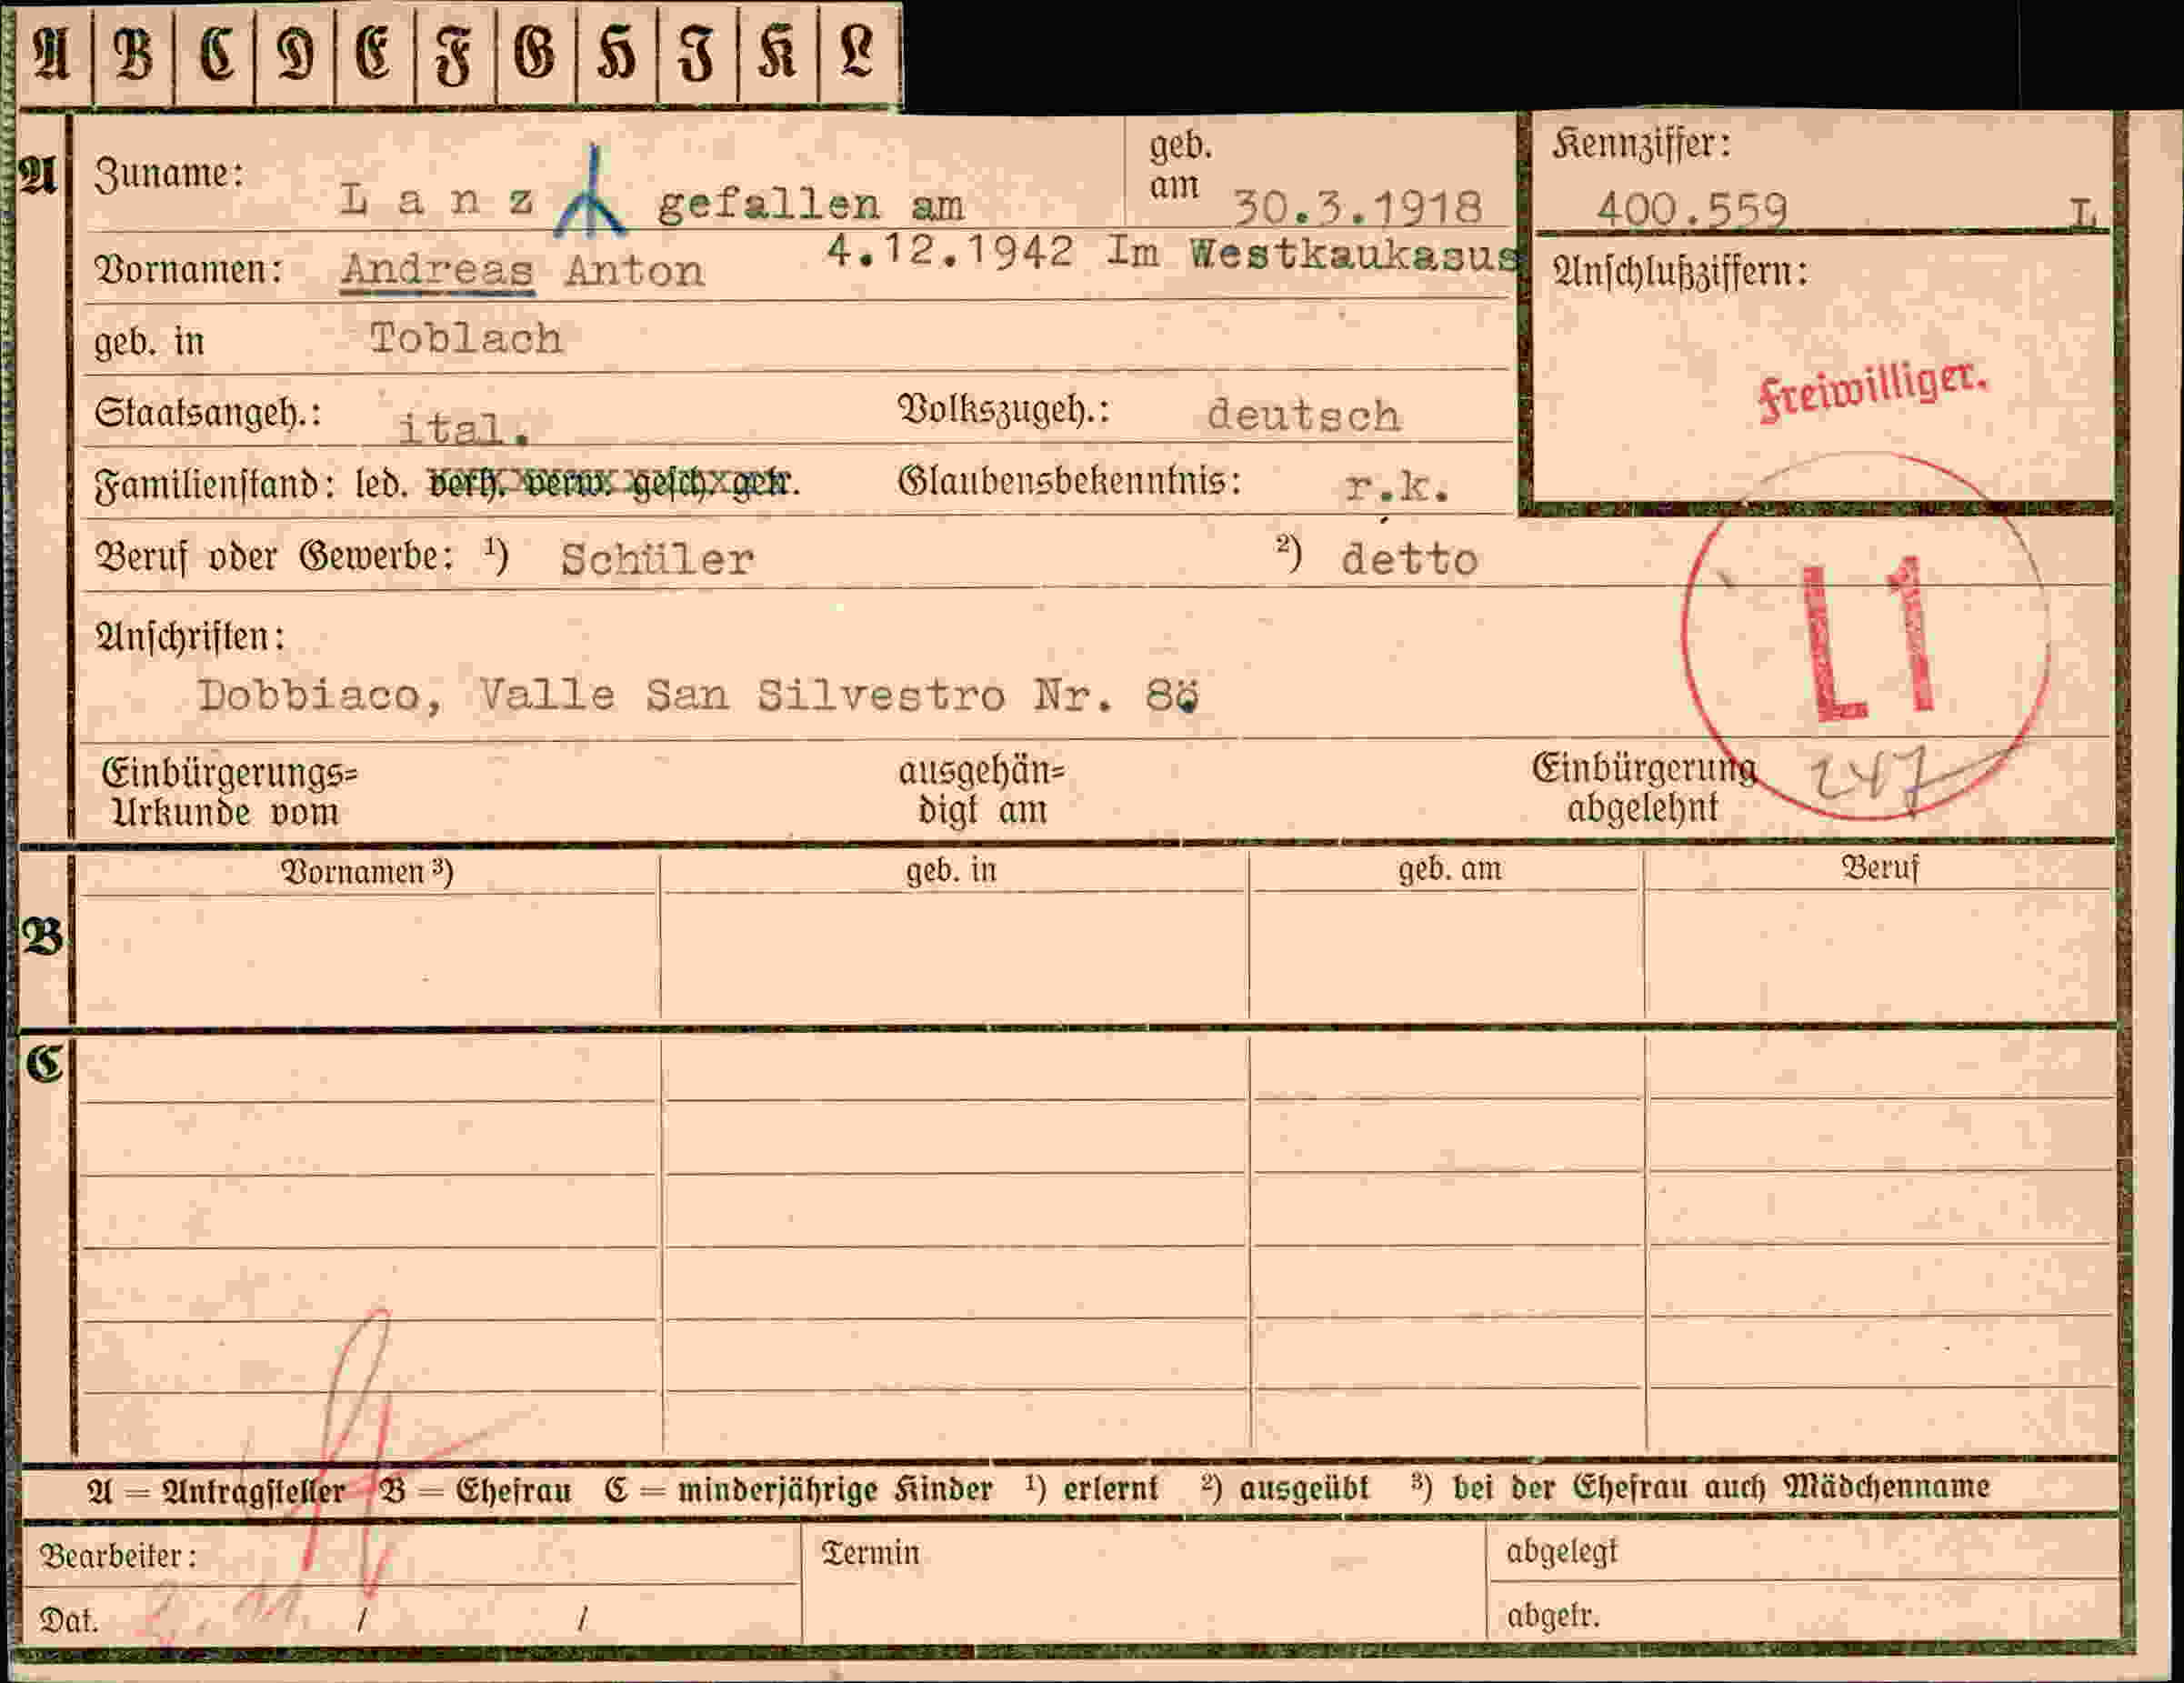 A B C D E F G H I K L
A
Zuname: Lanz gefallen am
geb. am 30.3.1918
Kennziffer:
400.559 L
Vornamen: Andreas Anton 4.12.1942 Im Westkaukasus
Anschlußziffern:
geb. in Toblach
Freiwilliger.
Staatsangeh.: ital. Volkszugeh.: deutsch
Familienstand: led. verh. verw. gesch. getr. Glaubensbekenntnis: r.k.
Beruf oder Gewerbe: 1) Schüler 2) detto
L1
Anschriften:
Dobbiaco, Valle San Silvestro Nr.
Einbürgerungs=
Urkunde vom
ausgehän=
digt am
Einbürgerung
abgelehnt
247
Vornamen 3) geb. in geb. am Beruf
B
C
A = Antragsteller B = Ehefrau C = minderjährige Kinder 1) erlernt 2) ausgeübt 3) bei der Ehefrau auch Mädchenname
Bearbeiter: Termin abgelegt
Dat. / / abgetr.